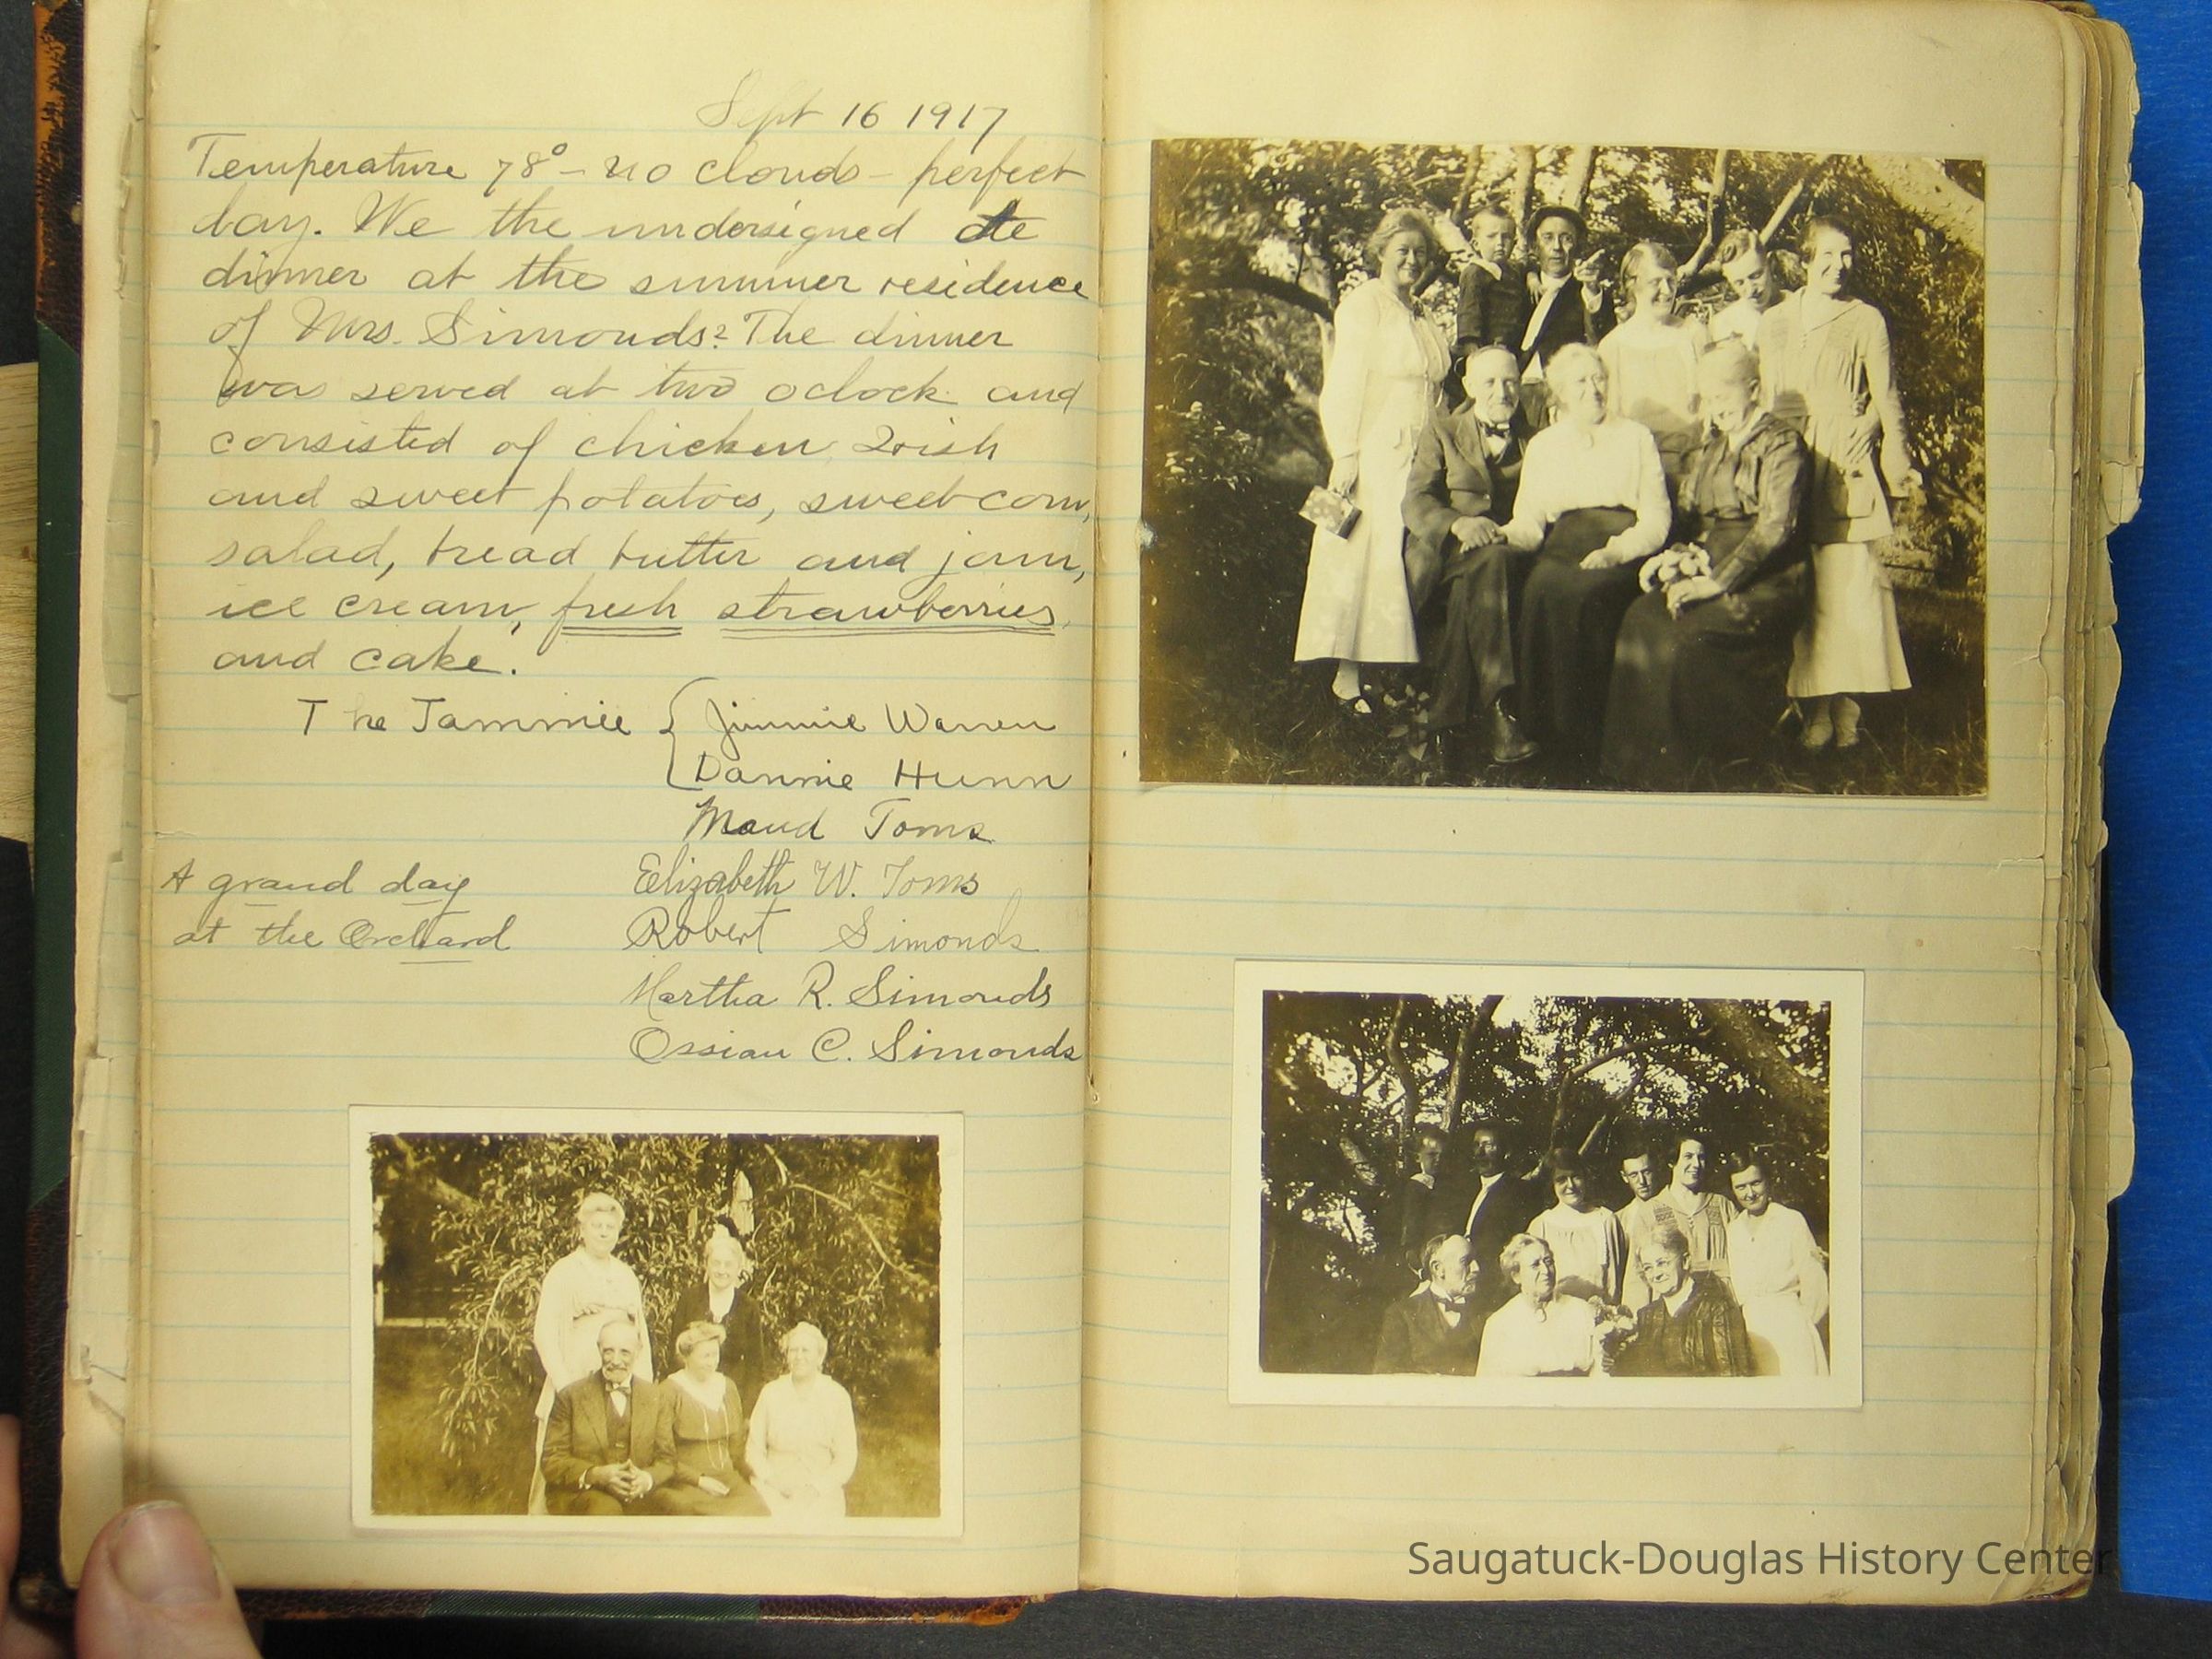 Sept 16 1917
Temperature 78° - no clouds - perfect
day. We the undersigned ate
dinner at the summer residence
of Mrs. Simonds. The dinner
was served at two oclock and
consisted of chicken, Irish
and sweet potatoes, sweet corn,
salad, bread butter and jam,
ice cream, fresh strawberries,
and cake.
The Tammie { Jimmie Warren
Dannie Hunn
Maud Toms
Elizabeth W. Toms
A grand day
at the Orchard
Robert Simonds
Martha R. Simonds
Ossian C. Simonds
Saugatuck-Douglas History Center